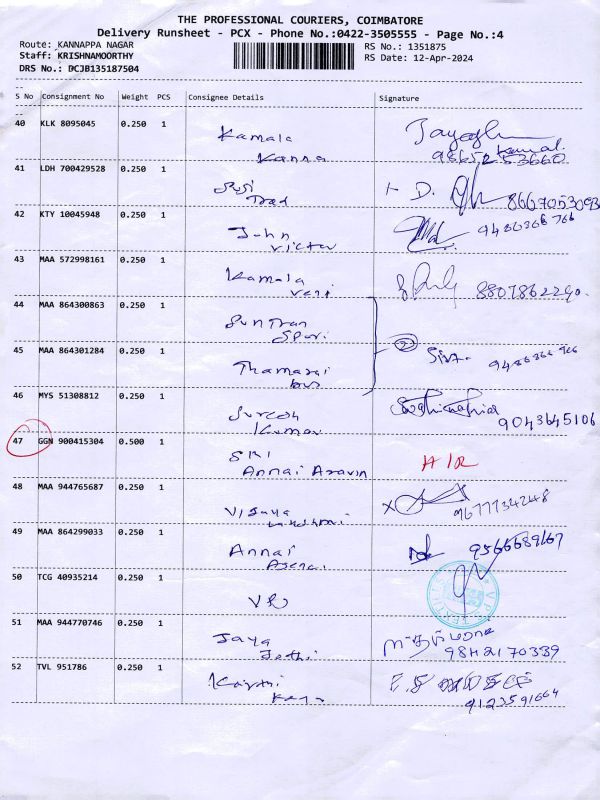 THE PROFESSIONAL COURIERS, COIMBATORE
Delivery Runsheet - PCX - Phone No.:0422-3505555 - Page No.:4
Route: KANNAPPA NAGAR RS No.: 1351875
Staff: KRISHNAMOORTHY RS Date: 12-Apr-2024
DRS No.: DCJB135187504
S No Consignment No Weight PCS Consignee Details Signature
40 KLK 8095045 0.250 1 Kamala
Kanna 98652 53660
41 LDH 700429528 0.250 1 8667053093
42 KTY 10045948 0.250 1 John
Victor 9486366 766
43 MAA 572998161 0.250 1 Kamala
Veni 8807862290
44 MAA 864300863 0.250 1 Suntran
45 MAA 864301284 0.250 1 Thamarai Siva
46 MYS 51308812 0.250 1 Suresh
Kumar 9043645106
47 GGN 900415304 0.500 1 SRI A/R
Annai Aravin
48 MAA 944765687 0.250 1 Vijaya
Lakshmi 9677734248
49 MAA 864299033 0.250 1 Annai 9566689167
50 TCG 40935214 0.250 1
51 MAA 944770746 0.250 1 Jaya
Jothi 9842170339
52 TVL 951786 0.250 1
9123591664